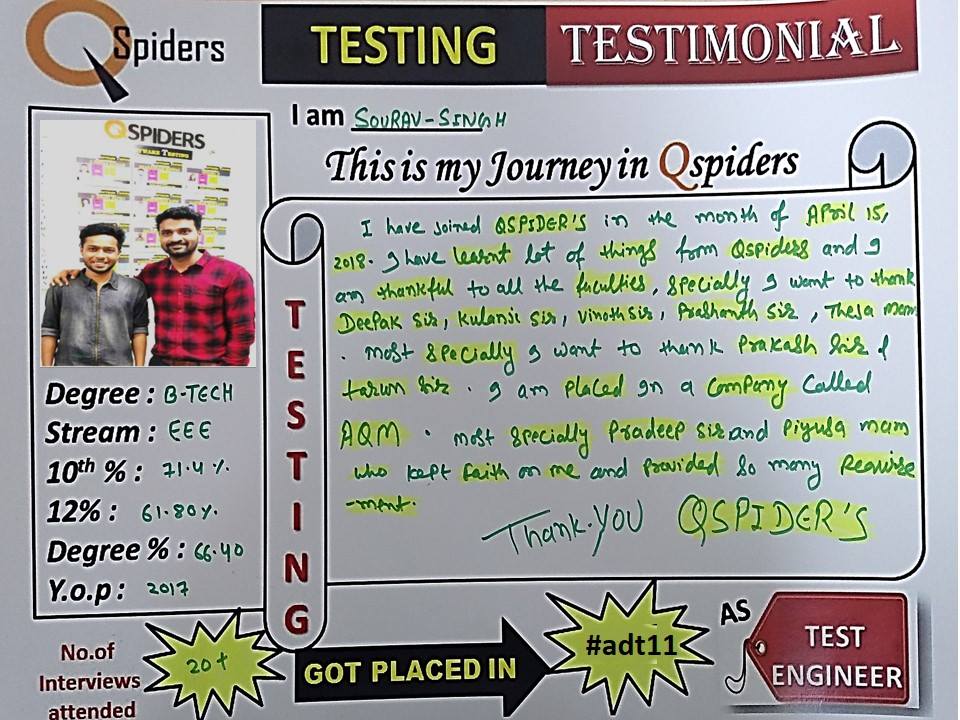 QSpiders
TESTING TESTIMONIAL
I am SOURAV-SINGH
This is my Journey in Qspiders
QSPIDERS
I have joined QSPIDER'S in the month of APril 15,
2018. I have learnt lot of things from Qspiders and I
am thankful to all the faculties, specially I want to thank
Deepak sir, Kulanic sir, Vinoth sir, Prashanth sir, Theja mam
. most specially I want to thank Prakash sir &
tarun sir. I am placed In a company called
AQM. most specially Pradeep sir and Piyusa mam
who kept faith on me and provided so many Requise
-ment.
Thank.YOU QSPIDER'S
TESTING
Degree : B-TECH
Stream : EEE
10th % : 71.4 %
12% : 61.80%
Degree % : 66.40
Y.o.p : 2017
No.of
Interviews
attended
20+
GOT PLACED IN
#adt11
AS
TEST
ENGINEER